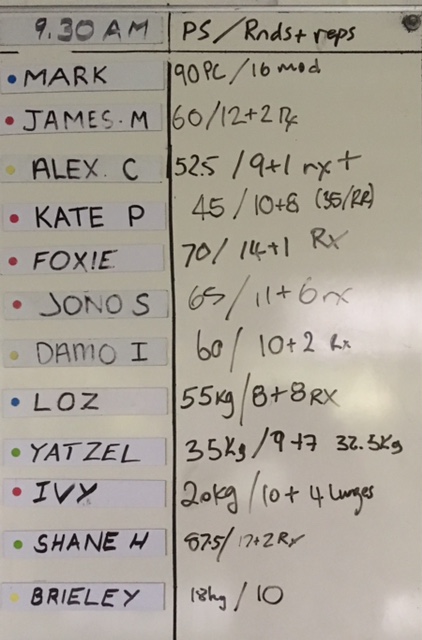 9.30 AM PS / Rnds + reps
MARK 90PC / 16 mod
JAMES.M 60/12+2 Rx
ALEX. C 52.5 / 9+1 rx +
KATE P 45 / 10+8 (35/RR)
FOXIE 70/ 14+1 Rx
JONO S 65/ 11+6 rx
DAMO I 60/ 10+2 Rx
LOZ 55kg/8+8 RX
YATZEL 35Kg/9+7 32.5Kg
IVY 20kg/10+4 lunges
SHANE H Rx
BRIELEY 18kg / 10